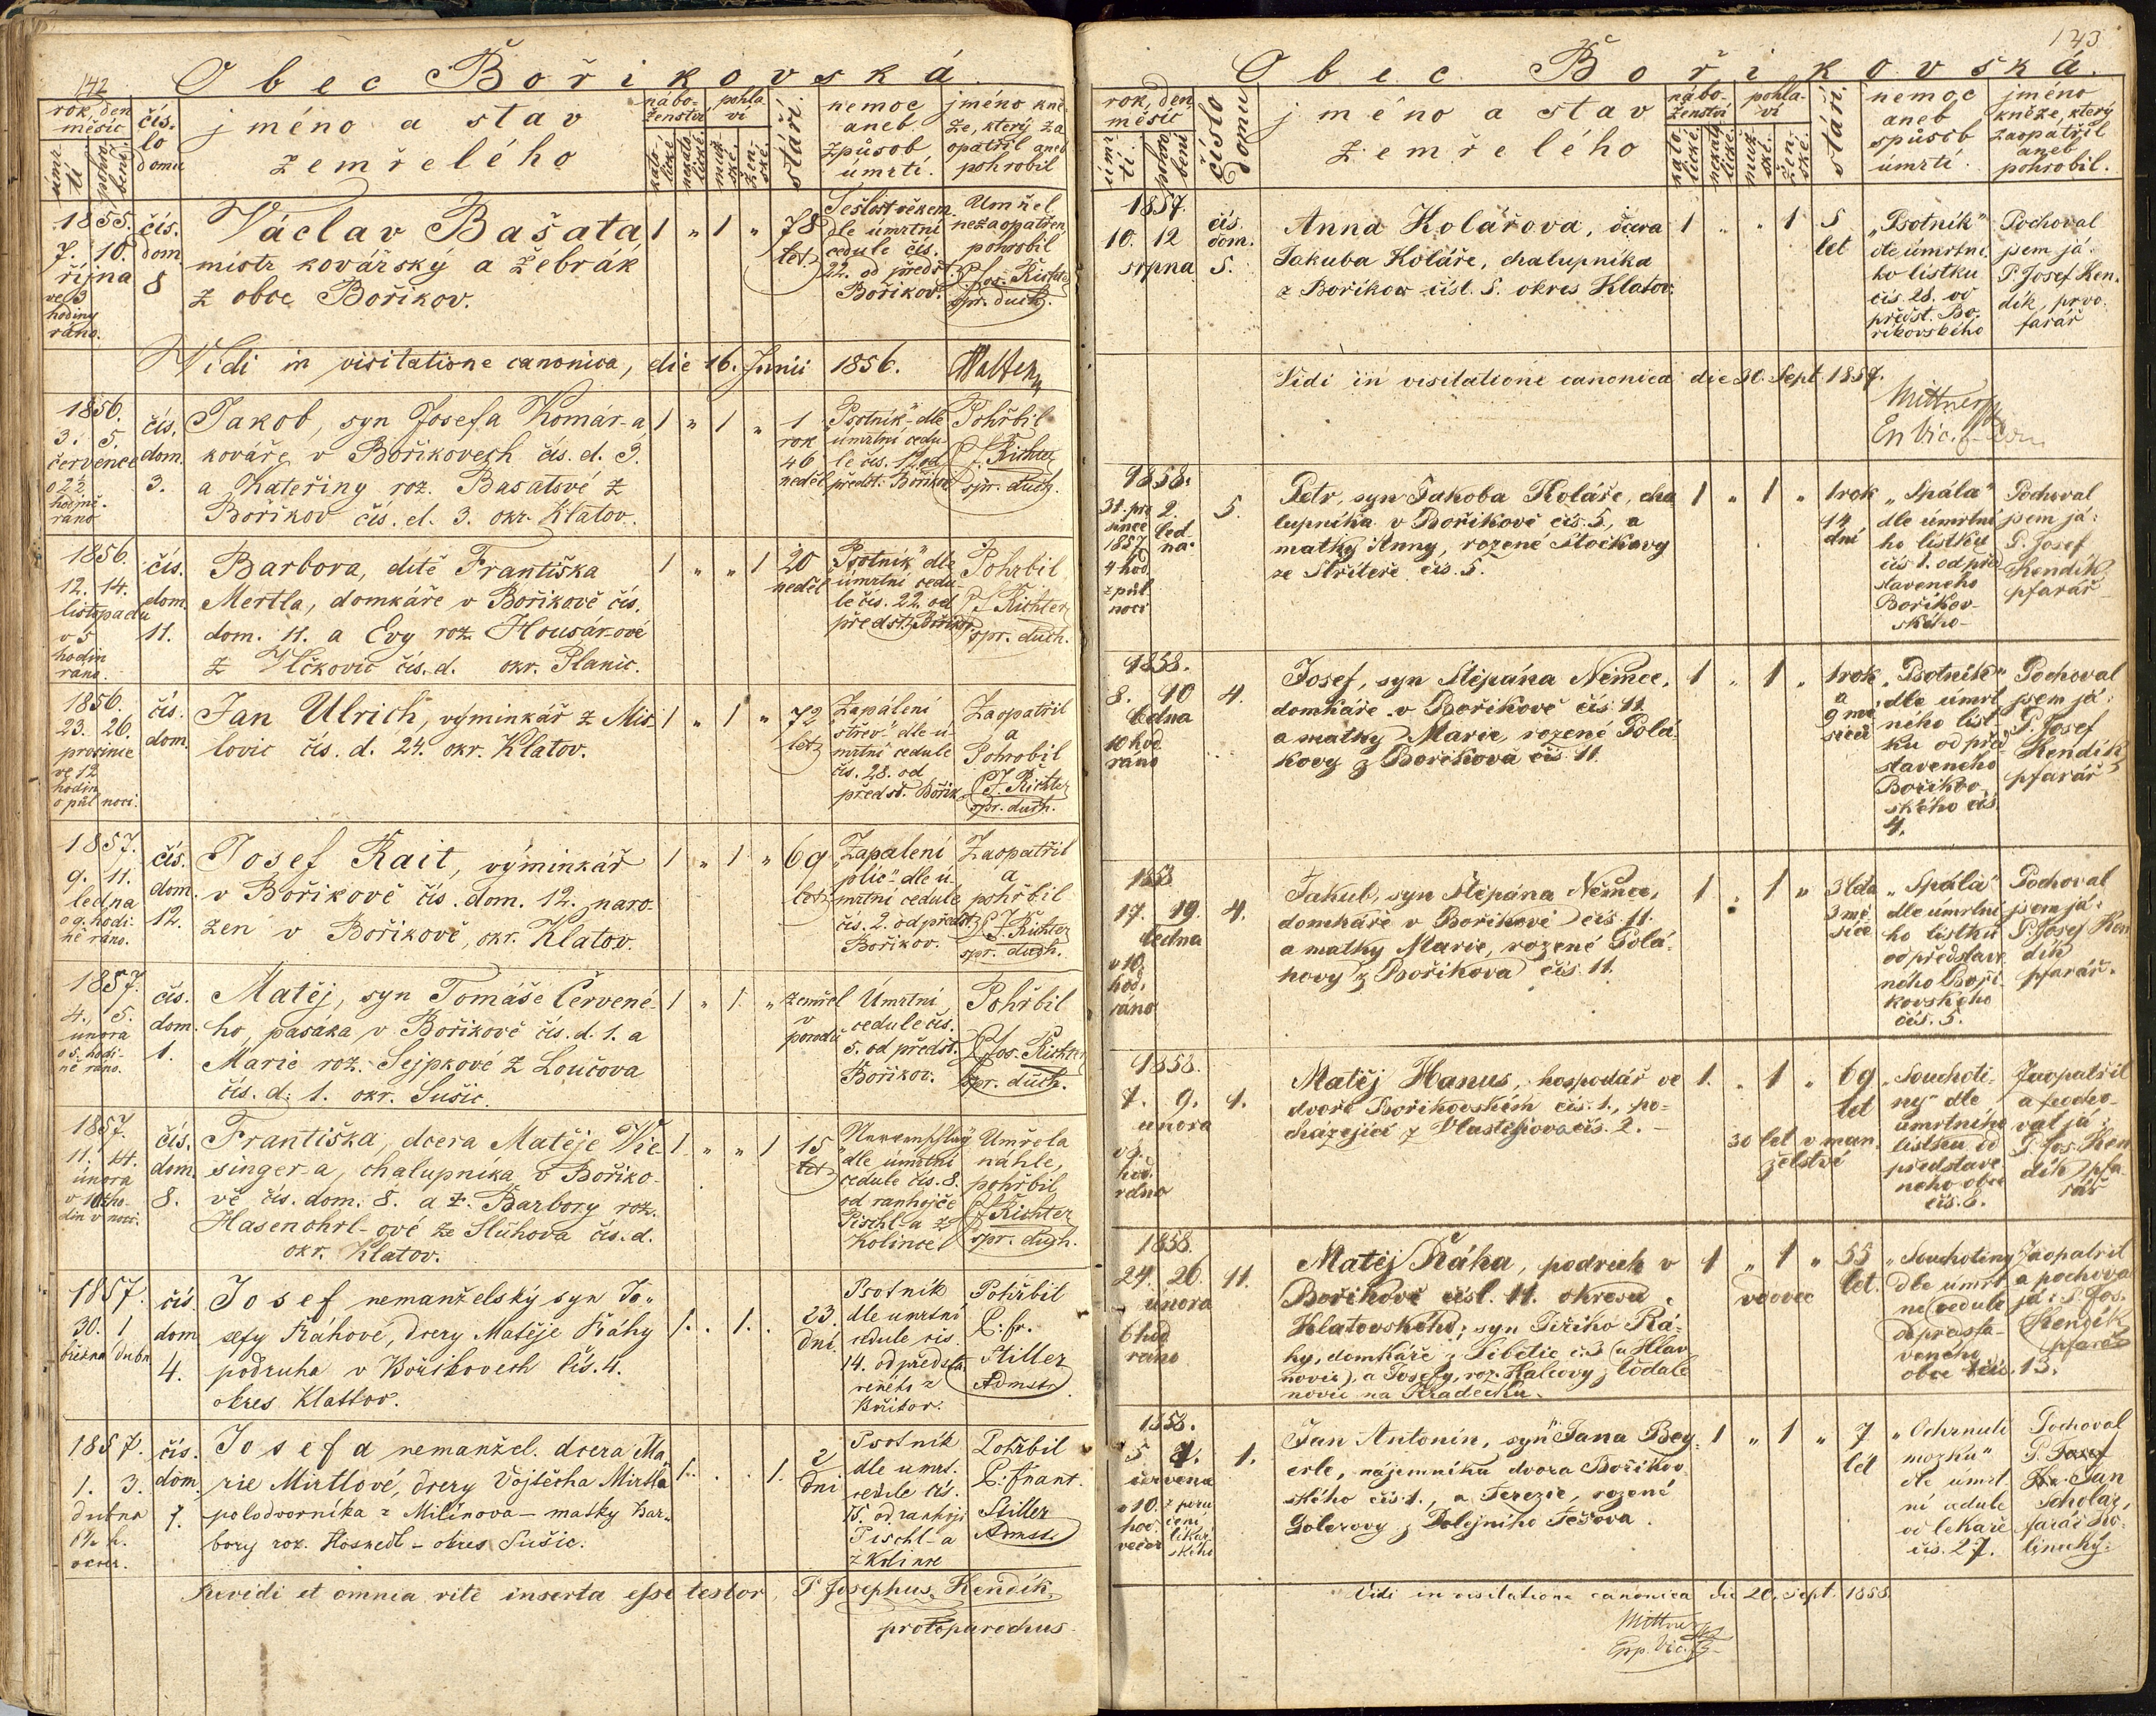 142
Obec Bořikovská.
rok, den
měsíc
úmr-
tí
pohro-
bení
čís-
lo
domu
jméno a stav
zemřelého
nábo-
ženství
kato-
lické
nekato-
lické
pohla-
ví
muž-
ské
žen-
ské
stáří.
nemoc
aneb
způsob
úmrtí.
jméno kně-
ze, který za-
opatřil aneb
pohrobil
1855.
7. 10.
října
ve 3
hodiny
ráno.
čís.
dom.
8
Václav Bašata
mistr kovářský a žebrák
z obce Bořikov.
1 „ 1 „
78
let
Sešlost věkem
dle úmrtní
cedule čís.
22. od předst.
Bořikov.
Umřel
nezaopatřen
pohrobil
P. Jos. Richter
spr. duch.
Vidi in visitatione canonica, die 16. Junii 1856.
1856.
3. 5.
července
o 2½
hodině
ráno
čís.
dom.
3.
Jakob, syn Josefa Komár-a
kováře v Bořikovech čís. d. 3.
a Kateřiny roz. Basatové z
Bořikov čís. d. 3. okr. Klatov.
1 „ 1 „
1
rok
46
neděl
„Psotník“ dle
úmrtní cedu-
le čís. 12 od
předst. Bořikov
Pohřbil
P. J. Richter
spr. duch.
1856.
12. 14.
listopadu
v 5
hodin
ráno.
čís.
dom.
11.
Barbora, dítě Františka
Mertla, domkáře v Bořikově čís.
dom. 11. a Evy roz. Housár-ové
z Vlčkovic čís. d. okr. Planic.
1 „ „ 1
20
neděl
„Psotník“ dle
úmrtní cedu-
le čís. 22. od
předst. Bořikov
Pohřbil
P. J. Richter
spr. duch.
1856.
23. 26.
prosince
ve 12
hodin
o půl noci.
čís.
dom.
Jan Ulrich, výminkář z Mis-
lovic čís. d. 24. okr. Klatov.
1 „ 1 „
72
let
„Zapálení
střev“ dle ú-
mrtní cedule
čís. 28. od
předst. Bořik.
Zaopatřil
a
Pohrobil
P. J. Richter
spr. duch.
1857.
9. 11.
ledna
o 9. hodi-
ně ráno.
čís.
dom.
12.
Josef Rait, výminkář
v Bořikově čís. dom. 12. naro-
zen v Bořikově, okr. Klatov.
1 „ 1 „
69
let
„Zapálení
plic“ dle ú-
mrtní cedule
čís. 2. od předst.
Bořikov.
Zaopatřil
a
pohřbil
P. J. Richter
spr. duch.
1857.
4. 5.
února
o 5. hodi-
ně ráno.
čís.
dom.
1.
Matěj, syn Tomáše Červené-
ho, pasáka v Bořikově čís. d. 1. a
Marie roz. Sejpkové z Loučova
čís. d. 1. okr. Sušic.
1 „ 1. „
zemřel
v
porodu
Úmrtní
cedule čís.
5. od předst.
Bořikov.
Pohřbil
P. Jos. Richter
spr. duch.
1857.
11. 14.
února
din v noci.
čís.
dom.
8.
Františka, dcera Matěje Wie-
singer-a, chalupníka v Bořiko-
vě čís. dom. 8. a z. Barbory roz.
Hasenohrl-ové ze Sluhova čís. d.
okr. Klatov.
1. „ „ 1
15
let
dle úmrtní
cedule čís. 8.
od ranhojiče
Pischl-a z
Kolince
Umřela
náhle,
pohřbil
P. J. Richter
spr. duch.
1857.
30. 1
března dubn
čís.
dom
4.
Josef nemanželský syn Jo-
sefy Ráhové, dcery Matěje Ráhy
podruha v Bořikovech čís. 4.
okres Klattov.
1. . 1. .
23.
dní.
Psotník
dle umrtní
cedule čís
14. od předsta
veného z
Bořikov.
Pohřbil
P. fr.
Stiller
Admstr.
1857.
1. 3.
dubna
6½ h.
večer.
čís.
dom.
7.
Josefa nemanžel. dcera Ma-
rie Mirttlové, dcery Vojtěcha Mirttla
polodvorníka z Milínova – matky Bar-
bory roz. Hosnedl – okres Sušic.
1. . . 1.
2
dni
Psotník
dle umrt.
cedule čís.
15. od ranhoji
Pischl-a
z Kolince
Pohřbil
P. frant.
Stiller
Admstr.
Revidi et omnia rite inserta esse testor, P. Josephus Kendík,
protoparochus.
143
Obec Bořikovská.
rok, den
měsíc
úmr-
tí.
pohro-
bení
číslo
domu
jméno a stav
zemřelého
nábo-
ženství
kato-
lické.
nekato-
lické.
pohla-
ví
muž-
ské.
žen-
ské.
stáří.
nemoc
aneb
spůsob
úmrtí.
jméno
kněze, který
zaopatřil
aneb
pohrobil.
1857.
10. 12
srpna
čís.
dom.
5.
Anna Kolářova, dcera
Jakuba Koláře, chalupníka
z Bořikov čísl. 5. okres Klatov.
1 „ „ 1
5
let
„Psotník“
dle úmrtní-
ho lístku
čís. 28. od
předst. Bo-
řikovského
Pochoval
jsem já
P. Josef Ken-
dík, prvo-
farář
Vidi in visitatione canonica die 30. Sept. 1857.
Mittner
1858.
31. pro
since
1857
4 hod
z půl
noci
2.
led-
na.
5.
Petr, syn Jakoba Koláře, cha
lupníka v Bořikově čís. 5., a
matky Anny, rozené Stočkovy
ze Střiteře čís. 5.
1 „ 1 „
1 rok
14
dní
„Spála“
dle úmrtní
ho lístku
čís 1. od před
staveného
Bořikov-
ského
Pochoval
jsem já:
P. Josef
Kendík
pfarář
1858.
8. 10
ledna
10 hod
ráno
4.
Josef, syn Štěpána Němce,
domkáře v Bořikově čís. 11.
a matky Marie rozené Polá-
kovy z Bořikova čís 11.
1 „ 1 „
1 rok
a
9 mě
síců
„Psotník“
dle úmrt
ního líst
ku od před
staveného
Bořikov
ského čís
4.
Pochoval
jsem já:
P. Josef
Kendík
pfarář
1858
17. 19.
ledna
v 10.
hod.
ráno
4.
Jakub, syn Štěpána Němce,
domkáře v Bořikově čís 11.
a matky Marie, rozené Polá-
kovy z Bořikova čís. 11.
1 „ 1 „
3 léta
3 mě
síce
„Spála“
dle úmrtní
ho lístku
od představe
ného Boři-
kovského
čís. 5.
Pochoval
jsem já:
P. Josef Ken
dík
pfarář.
1858.
7. 9.
února
v 9.
hod.
ráno
1.
Matěj Hanus, hospodář ve
dvoře Bořikovském čís. 1., po-
cházející z Vlastějova čís. 2. –
1. „ 1 „
69
let
30 let v man
želství
„Souchoti-
ny“ dle
úmrtního
lístku od
představe
neho obce
čís. 6.
Zaopatřil
a pocho-
val já:
P. Jos. Ken
dík pfa-
rář
1858.
24. 26.
února
6 hod
ráno
11.
Matěj Ráha, podruh v
Bořikově čísl. 11. okresu
Klatovského; syn Jiřího Rá-
hy, domkáře z Tibětic č. 3 (u Hlav
novic), a Josefy, roz. Halcovy z Vodole
novic na Hradecku.
1 „ 1 „
vdovec
55
let.
„Souchotiny
dle úmrt
ní cedule
od předsta-
veného
obce čís. 13.
Zaopatřil
a pochova
já: P. Jos.
Kendík
pfarář
1858.
5. 7.
června
v 10.
hod.
večer
z poru
čení
lékař
ského
1.
Jan Antonín, syn Jana Bey-
erle, nájemníka dvora Bořikov
ského čís 1., a Terezie, rozené
Golerovy z Dolejního Těšova.
1 „ 1 „
7
let
„Ochrnutí
mozku“
dle úmrt
ní cedule
od lékaře
čís. 27.
Pochoval
P. Josef
Jan
Scholar,
farář Ko-
linecký.
Vidi in visitatione canonica die 20. Sept. 1858.
Mittner